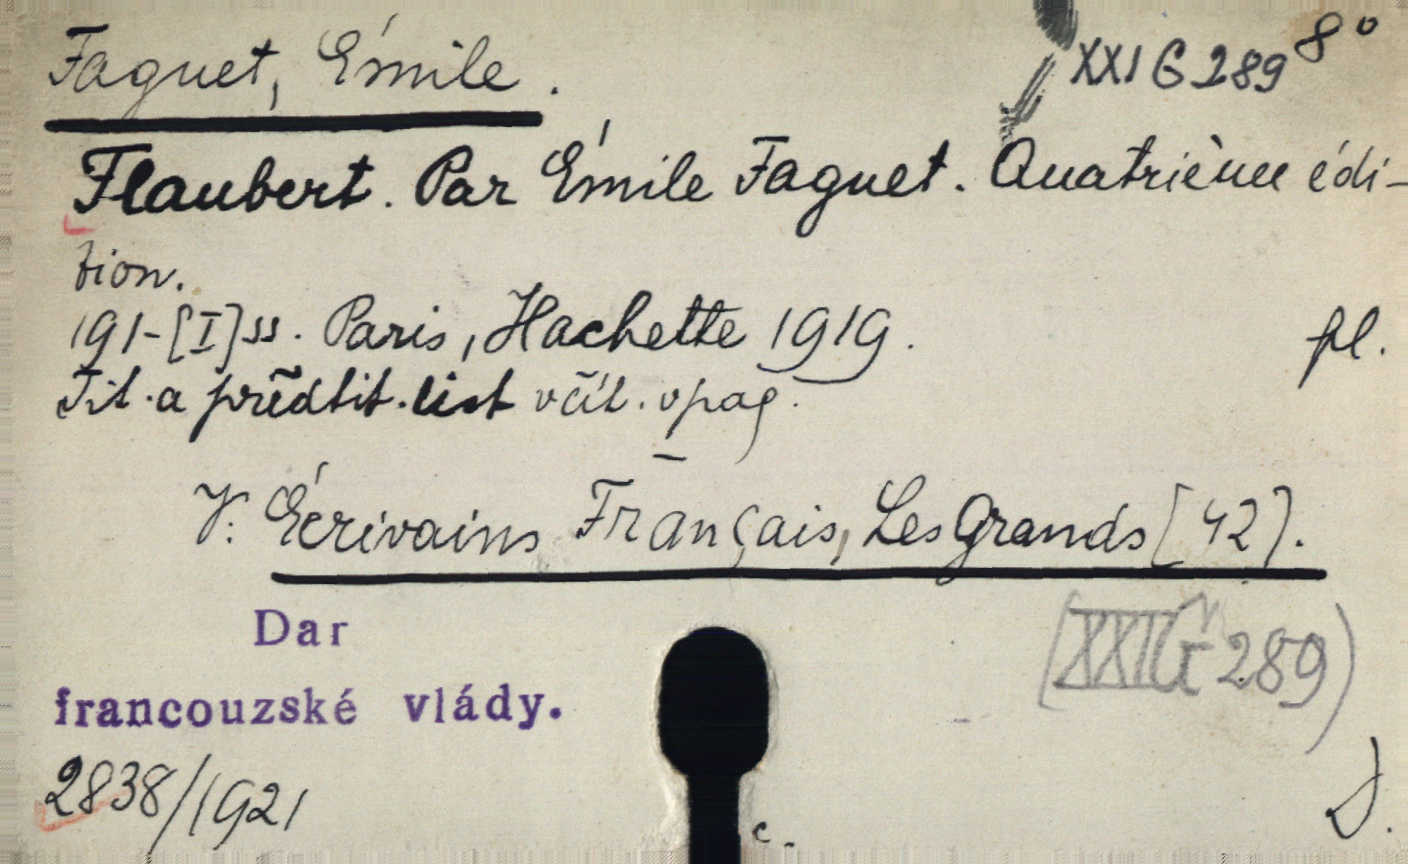 Faguet, Émile.
XXI G 289 8°
Flaubert. Par Émile Faguet. Quatrième édi-
tion.
191-[I] ss. Paris, Hachette 1919.
pl.
Tit. a předtit. list včít. v pag.
V: Écrivains Français, Les Grands [42].
Dar
(XXI G 289)
francouzské vlády.
2838/1921
c.